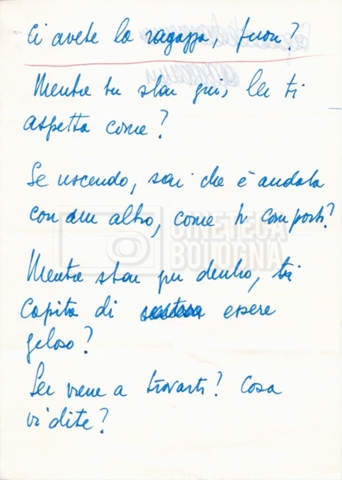 Ci avete la ragazza, fuori?
Mentre tu stai qui, lei ti
aspetta come?
Se uscendo, sai che è andata
con un altro, come ti comporti?
CINETECA
BOLOGNA
Mentre stai qui dentro, ti
capita di essere
geloso?
Lei viene a trovarti? Cosa
vi dite?